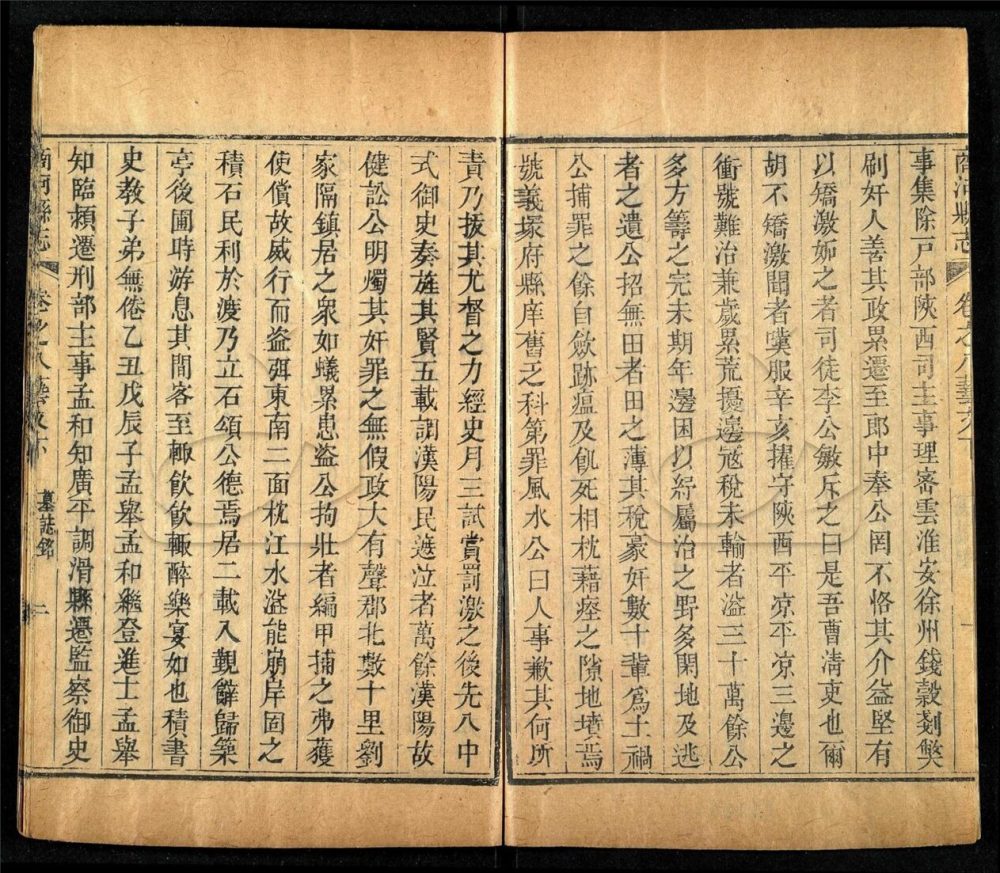 商河縣志 卷之八藝文下
事集除戸部陝西司主事理密雲淮安徐州錢穀剗獘
刷奸人善其政累遷至郎中奉公罔不恪其介益堅有
以矯激妬之者司徒李公敏斥之曰是吾曹清吏也爾
胡不矯激聞者嘆服辛亥擢守陝西平凉平凉三邊之
衝號難治兼歲累荒擾邊冦稅未輸者溢三十萬餘公
多方籌之完未期年邊困以紓屬治之野多閑地及逃
者之遺公招無田者田之薄其稅豪奸數十輩爲土禍
公捕罪之餘自歛跡瘟及飢死相枕藉瘞之隙地墳焉
號義塚府縣庠舊乏科第罪風水公曰人事歉其何所
責乃拔其尤督之力經史月三試賞罰激之後先八中
式御史奏旌其賢五載調漢陽民遮泣者萬餘漢陽故
健訟公明燭其奸罪之無假政大有聲郡北數十里劉
家隔鎮居之衆如蟻累患盗公拘壯者編甲捕之弗獲
使償故威行而盗弭東南二面枕江水溢能崩岸固之
積石民利於渡乃立石頌公德焉居二載入覲辭歸築
亭後圃時游息其間客至輒飲飲輒醉樂宴如也積書
史教子弟無倦乙丑戊辰子孟舉孟和繼登進士孟舉
知臨潁遷刑部主事孟和知廣平調滑縣遷監察御史
商河縣志 卷之八藝文下 墓誌銘 二